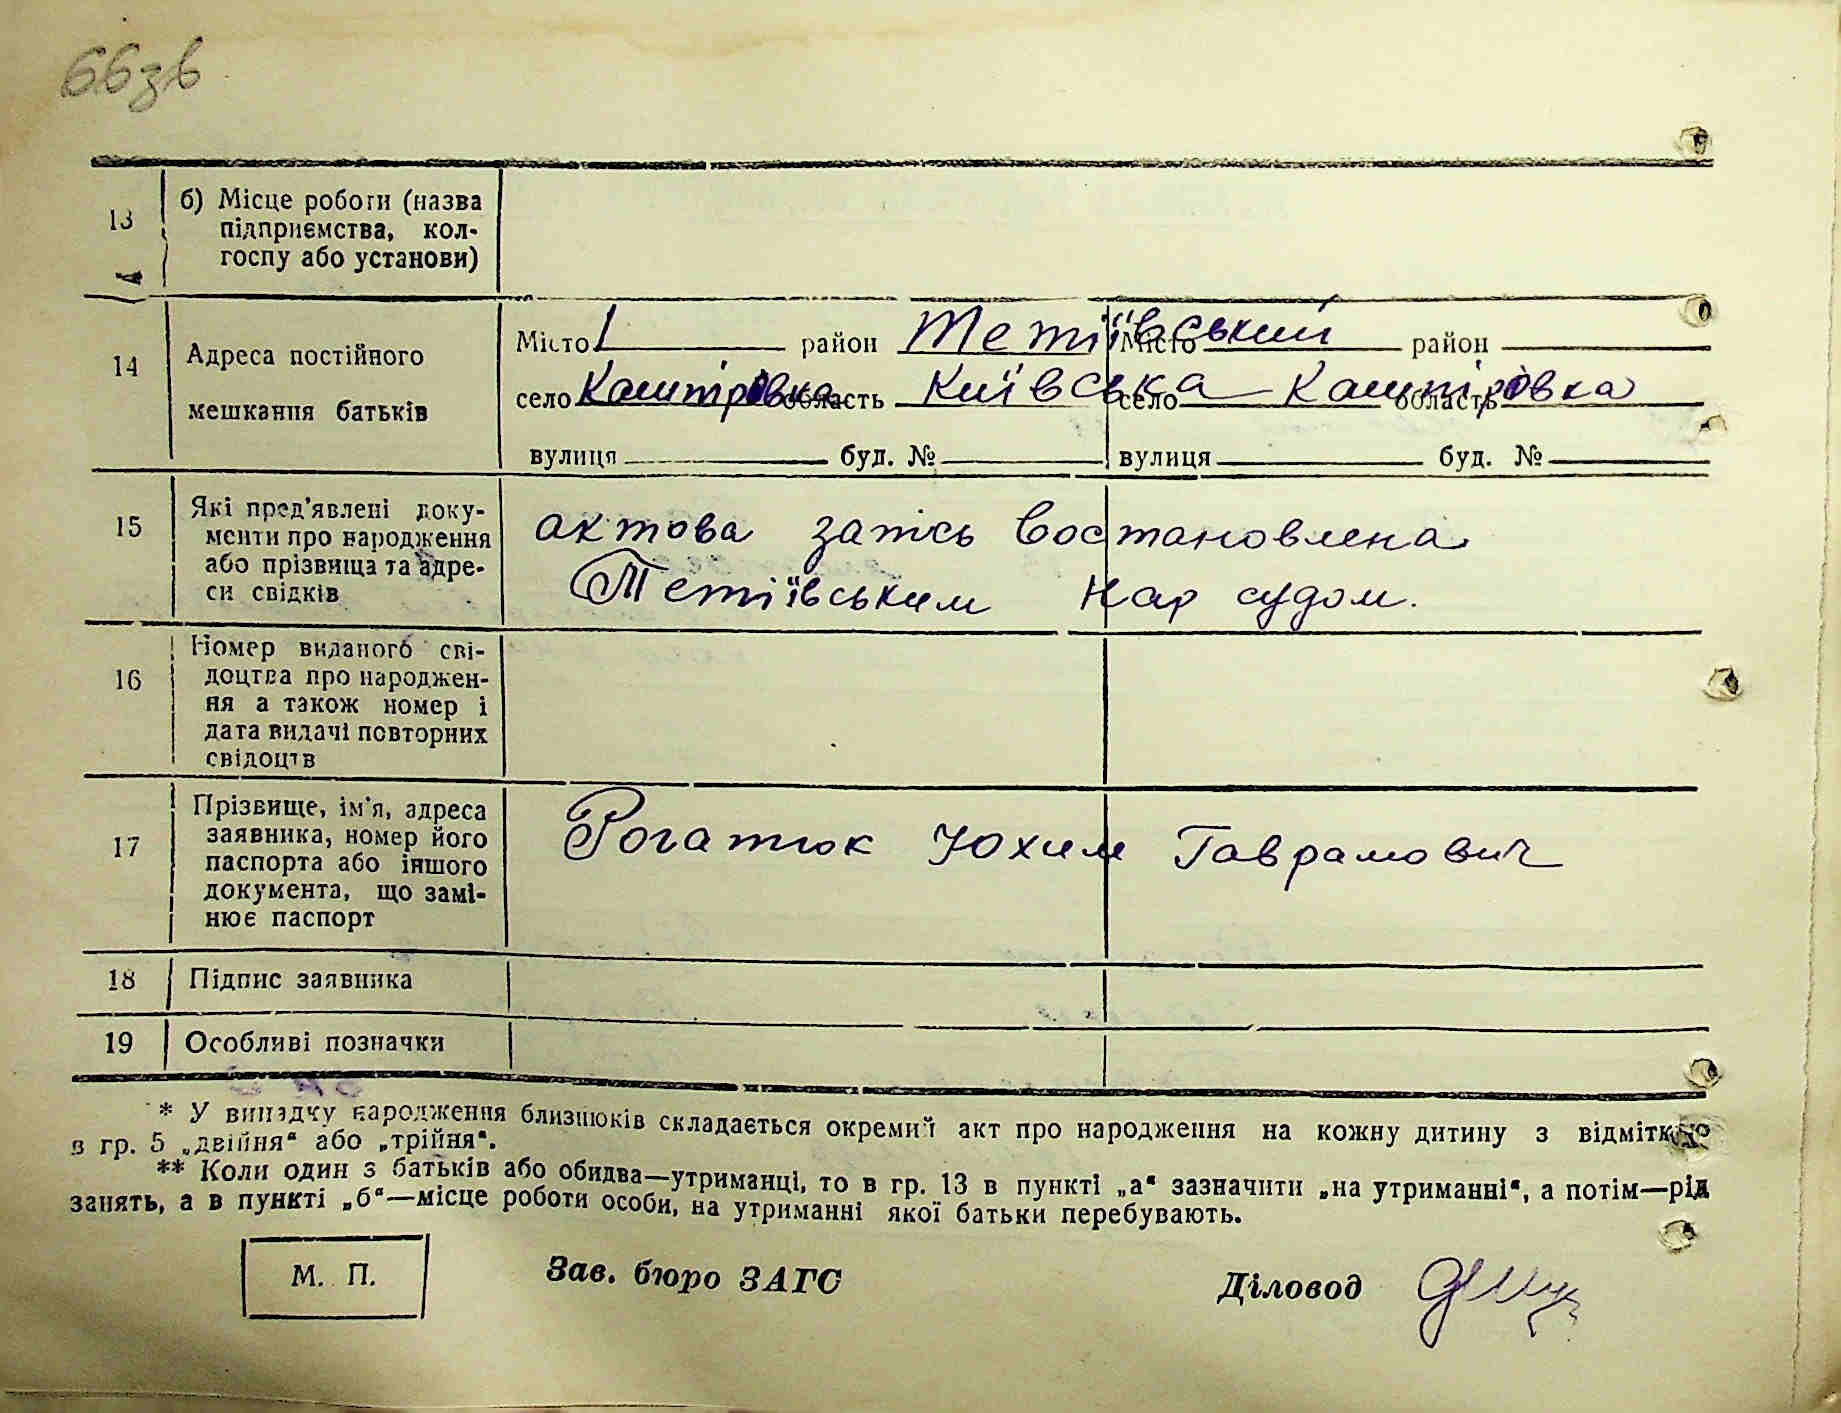 66зв
13 б) Місце роботи (назва
підприємства, кол-
госпу або установи)
14 Адреса постійного
мешкання батьків
Місто район Тетіївський Місто район
село Кашпірівка область Київська село Кашпірівка область
вулиця буд. № вулиця буд. №
15 Які пред'явлені доку-
менти про народження
або прізвища та адре-
си свідків
актова запісь востановлена
Тетіївським Нар судом.
16 Номер виданого сві-
доцтва про народжен-
ня а також номер і
дата видачі повторних
свідоцтв
17 Прізвище, ім'я, адреса
заявника, номер його
паспорта або іншого
документа, що замі-
нює паспорт
Рогатюк Юхим Гаврамович
18 Підпис заявника
19 Особливі позначки
* У випадку народження близнюків складається окремий акт про народження на кожну дитину з відміткою
в гр. 5 „двійня“ або „трійня“.
** Коли один з батьків або обидва—утриманці, то в гр. 13 в пункті „а“ зазначити „на утриманні“, а потім—рід
занять, а в пункті „б“—місце роботи особи, на утриманні якої батьки перебувають.
М. П. Зав. бюро ЗАГС Діловод